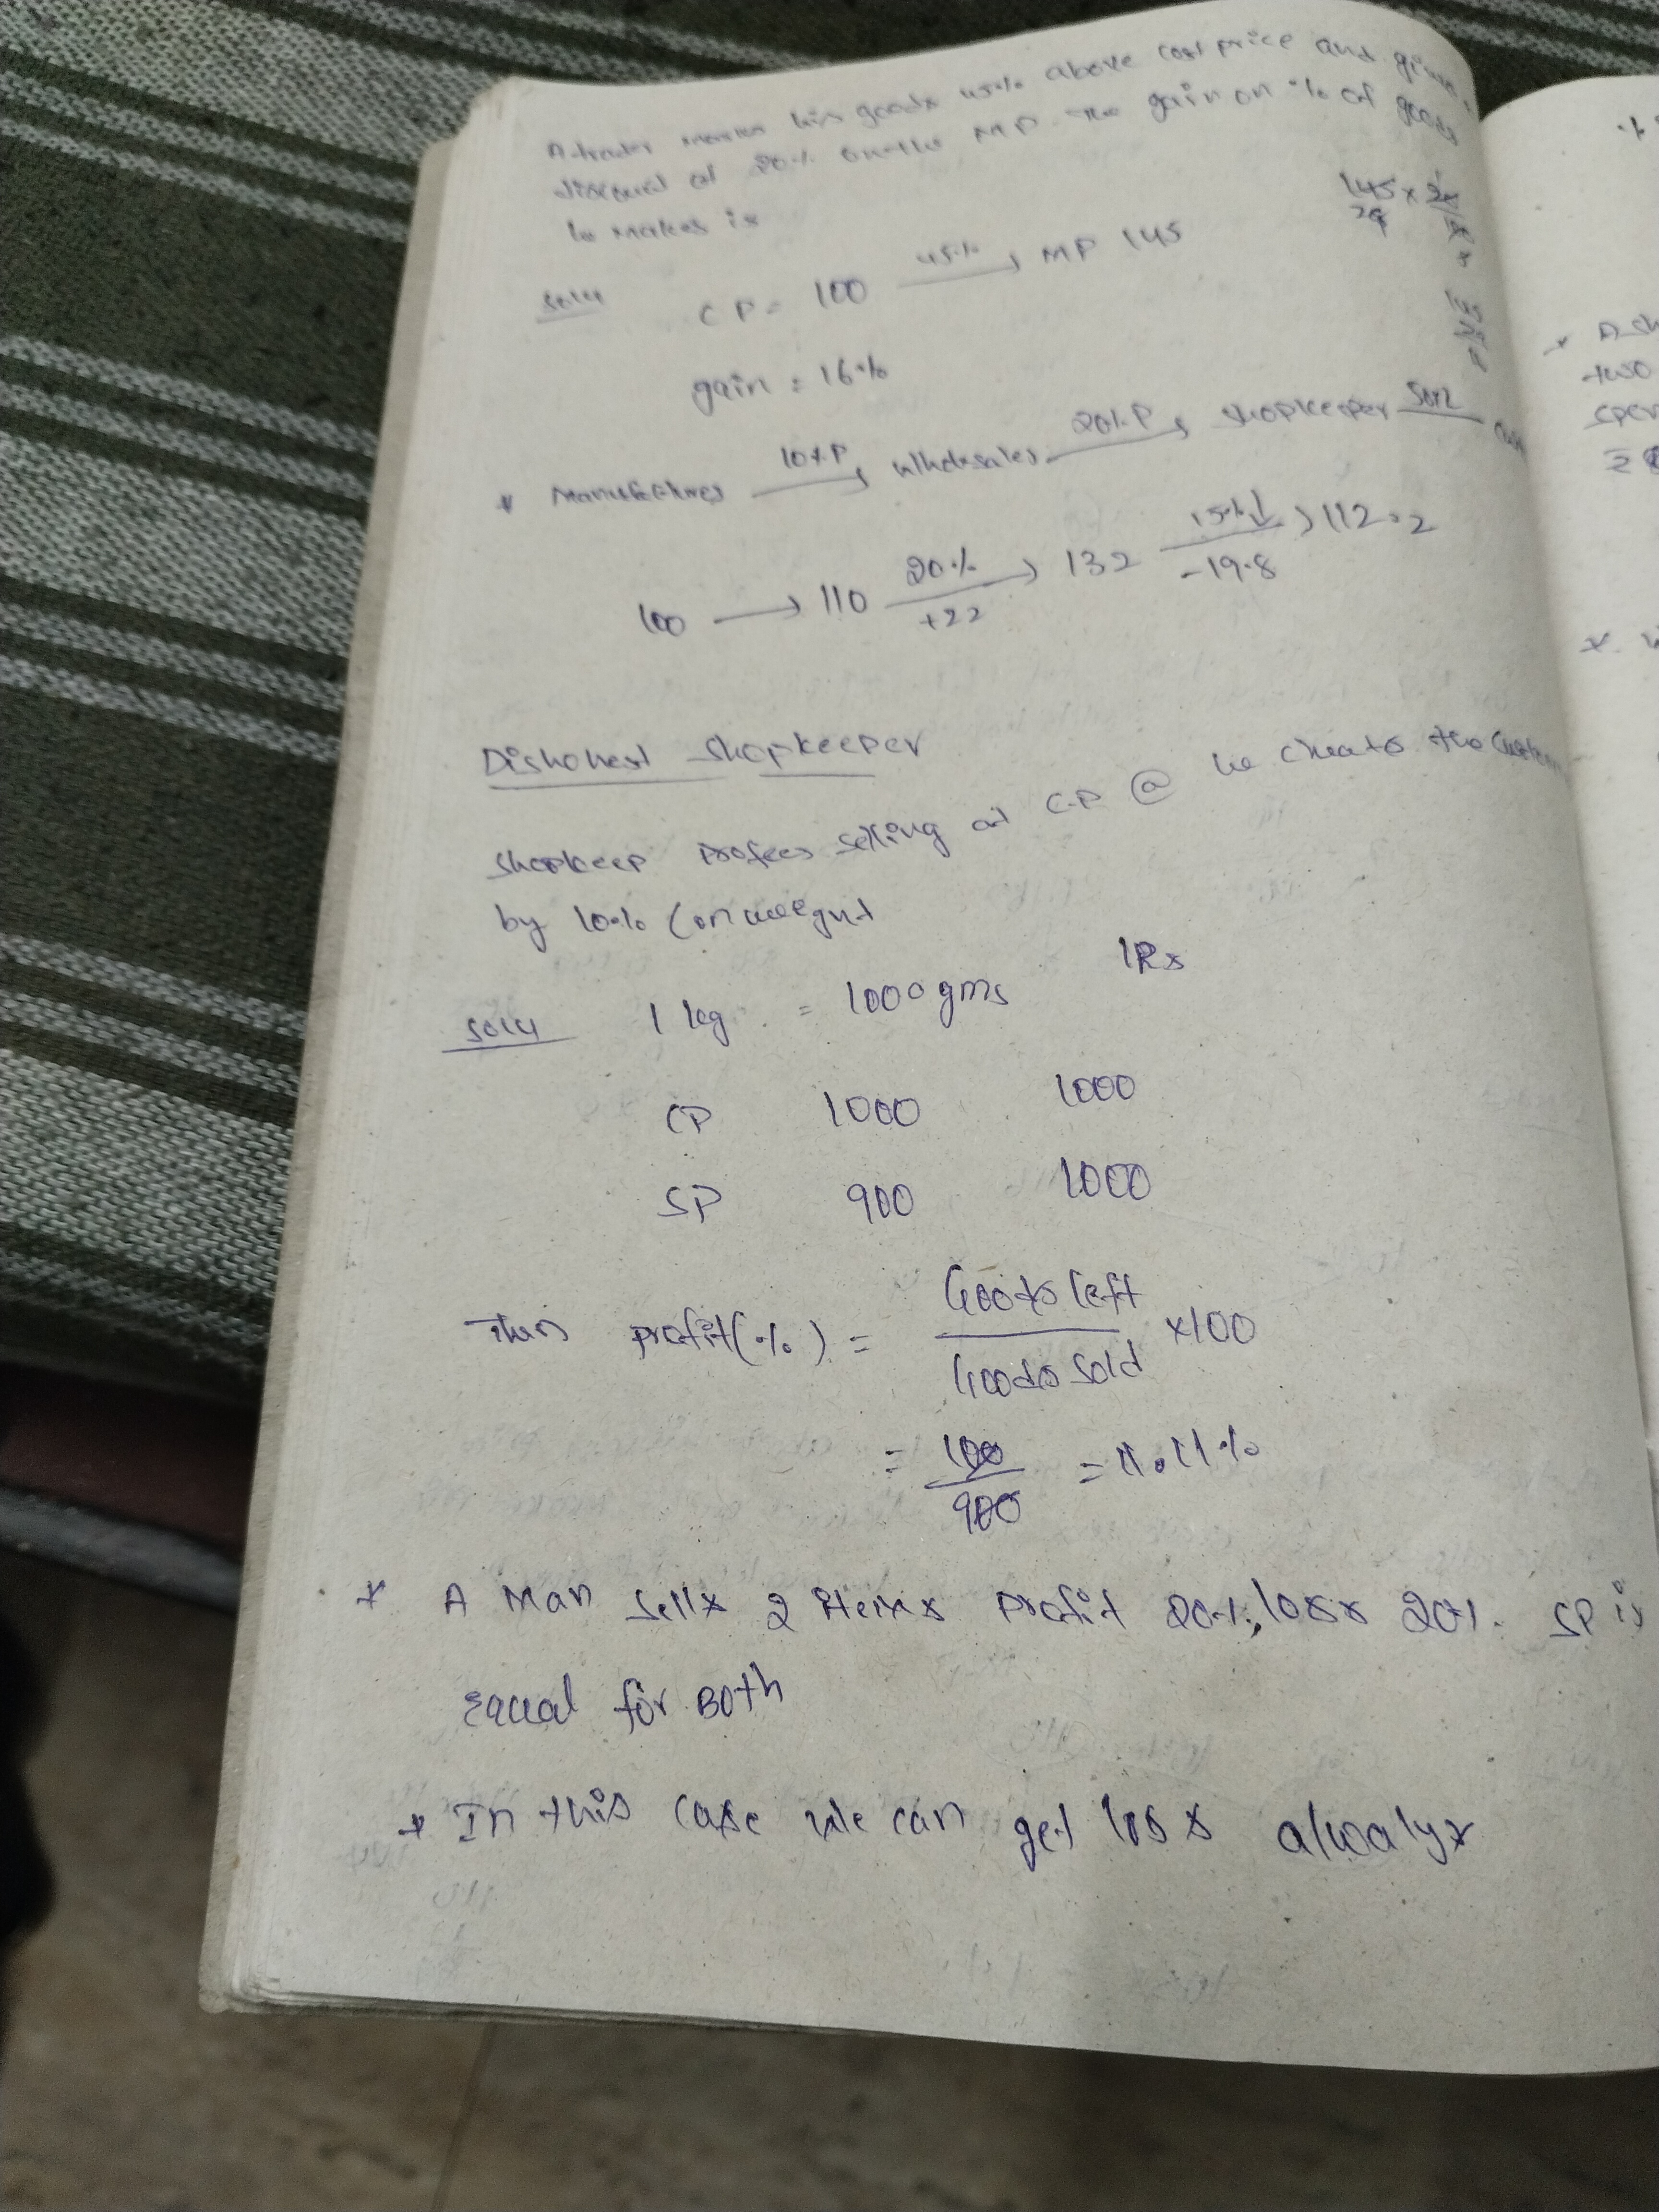 A trader marks his goods 45% above cost price and gives
discount of 20% on the MP. The gain on % of goods
he makes is
145 × 20
29
Soln CP = 100 45% → MP 145
gain = 16%
* Manufactures 10%P → wholesales 20%P → shopkeeper
100 → 110 20% +22 → 132 15%↓ -19.8 → 112.2
Dishonest shopkeeper
shopkeep profees selling at C.P @ he cheats the
by 10% (on weegut
Soln 1 kg = 1000 gms 1Rs
CP 1000 1000
SP 900 1000
Then profit(%) = Goods left / Goods sold ×100
= 100 / 900 = 11.11%
* A Man sells 2 items profit 20%, loss 20%. SP is
equal for Both
* In this case we can get loss alwalys
A
two